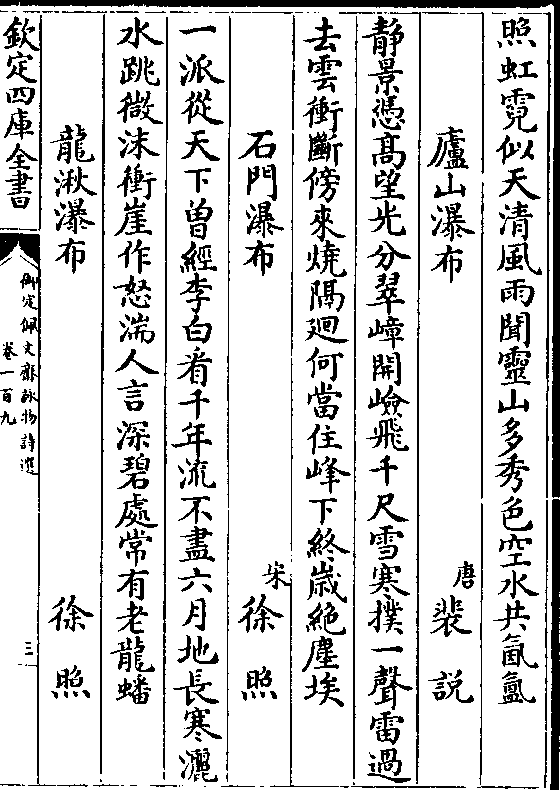 照虹霓似天清風雨聞靈山多秀色空水共氤氳
廬山瀑布　唐　裴説
静景憑髙望光分翠嶂開嶮飛千尺雪寒撲一聲雷過
去雲衝斷傍來燒隔廻何當住峰下終嵗絶塵埃
石門瀑布　宋　徐照
一派從天下曾經李白看千年流不盡六月地長寒灑
水跳微沫衝崖作怒湍人言深碧處常有老龍蟠
龍湫瀑布　徐照
欽定四庫全書
御定佩文齋詠物詩選
卷一百九
三